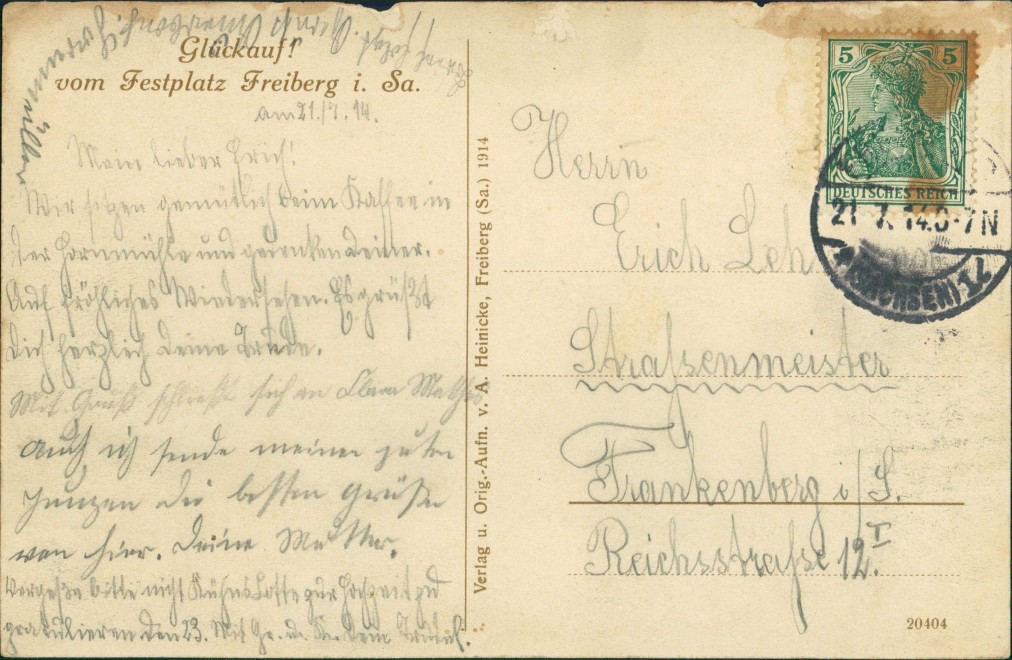 Glückauf!
vom Festplatz Freiberg i. Sa.
am 21./7. 14.
Mein lieber Erich!
Wir sitzen gemütlich beim Kaffee in
der Hornmühle und gedenken Deiner.
Auf fröhliches Wiedersehen. Es grüßt
Dich herzlich Deine Trude.
Mit Gruß schließt sich an Clara
Auch ich sende meinen guten
Jungen die besten Grüße
von hier. Deine Mutter.
Vergesse bitte nicht Kühns Lotte zur Hochzeit zu
gratulieren den 23. Mit Gr. u. K. Dein
Verlag u. Orig.-Aufn. v. A. Heinicke, Freiberg (Sa.) 1914
5 5
DEUTSCHES REICH
21 7. 14. 6-7 N
(SACHSEN) 1.
Herrn
Erich
Straßenmeister
Frankenberg i/S.
Reichsstraße 12. I
20404